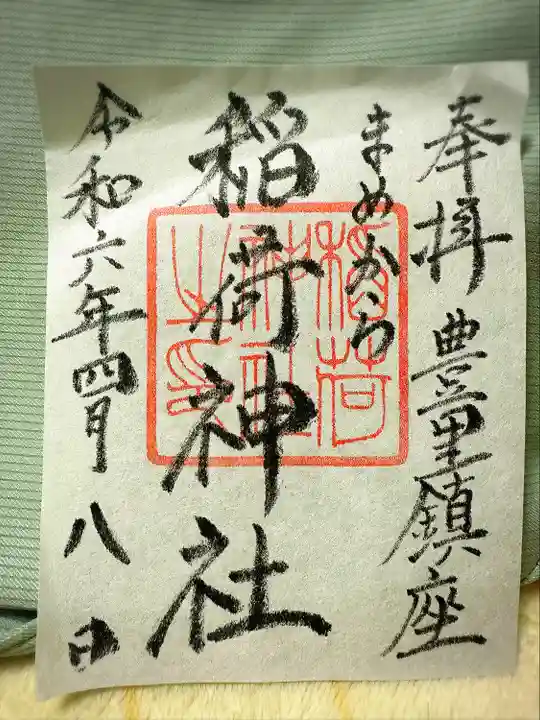 奉拝 豊里鎮座
まめおろ
稲荷神社
稲荷
神社
之印
令和六年四月八日